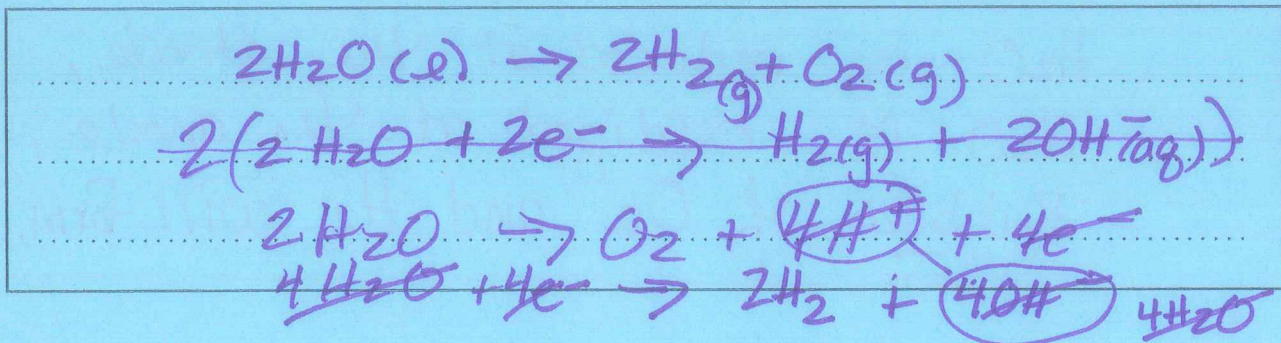 2H₂O (l) → 2H₂(g) + O₂ (g)
2(2 H₂O + 2e⁻ → H₂(g) + 2OH⁻(aq))
2H₂O → O₂ + 4H⁺ + 4e⁻
4H₂O + 4e⁻ → 2H₂ + 4OH⁻ 4H₂O